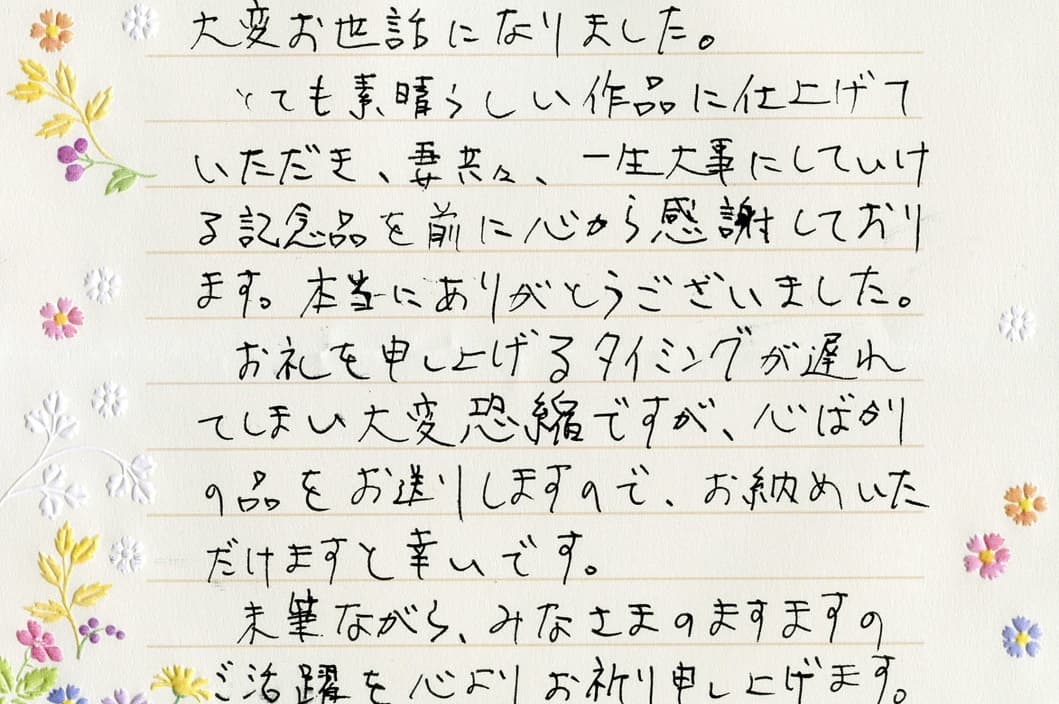 大変お世話になりました。
とても素晴らしい作品に仕上げて
いただき、妻共々、一生大事にしていけ
る記念品を前に心から感謝しており
ます。本当にありがとうございました。
お礼を申し上げるタイミングが遅れ
てしまい大変恐縮ですが、心ばかり
の品をお送りしますので、お納めいた
だけますと幸いです。
末筆ながら、みなさまのますますの
ご活躍を心よりお祈り申し上げます。